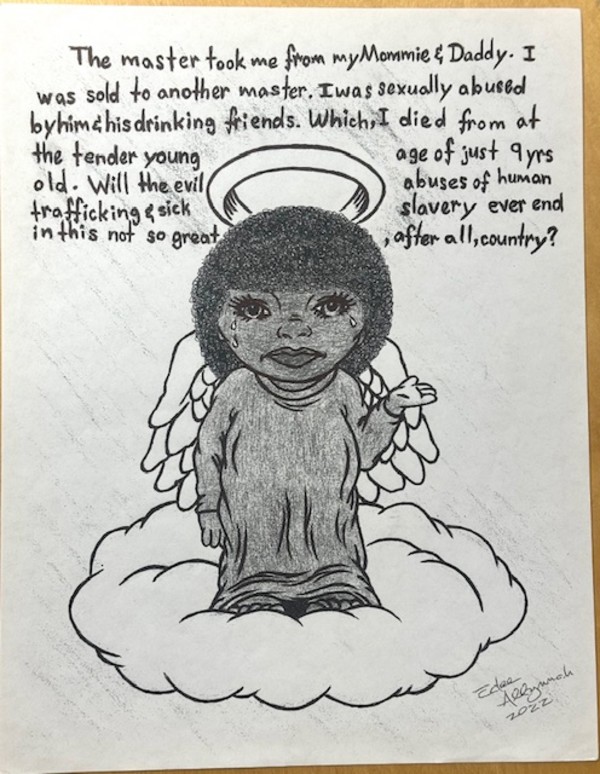 The master took me from my Mommie & Daddy. I
was sold to another master. I was sexually abused
by him & his drinking friends. Which, I died from at
the tender young age of just 9 yrs
old. Will the evil abuses of human
trafficking & sick slavery ever end
in this not so great, after all, country?
2022